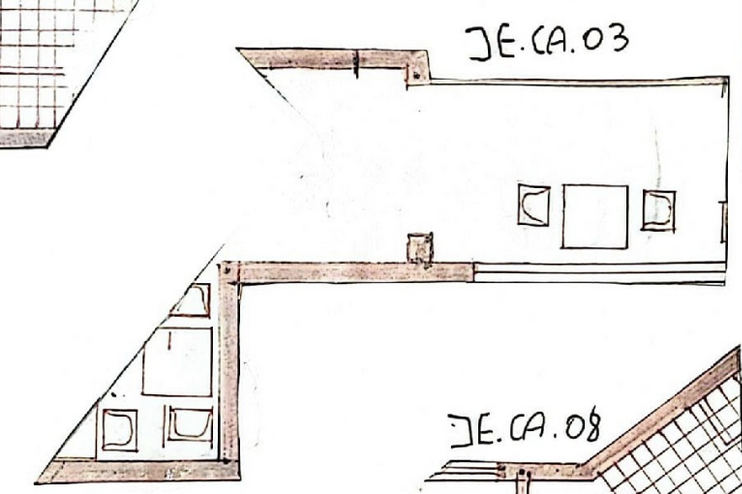 JE.CA.03
JE.CA.08